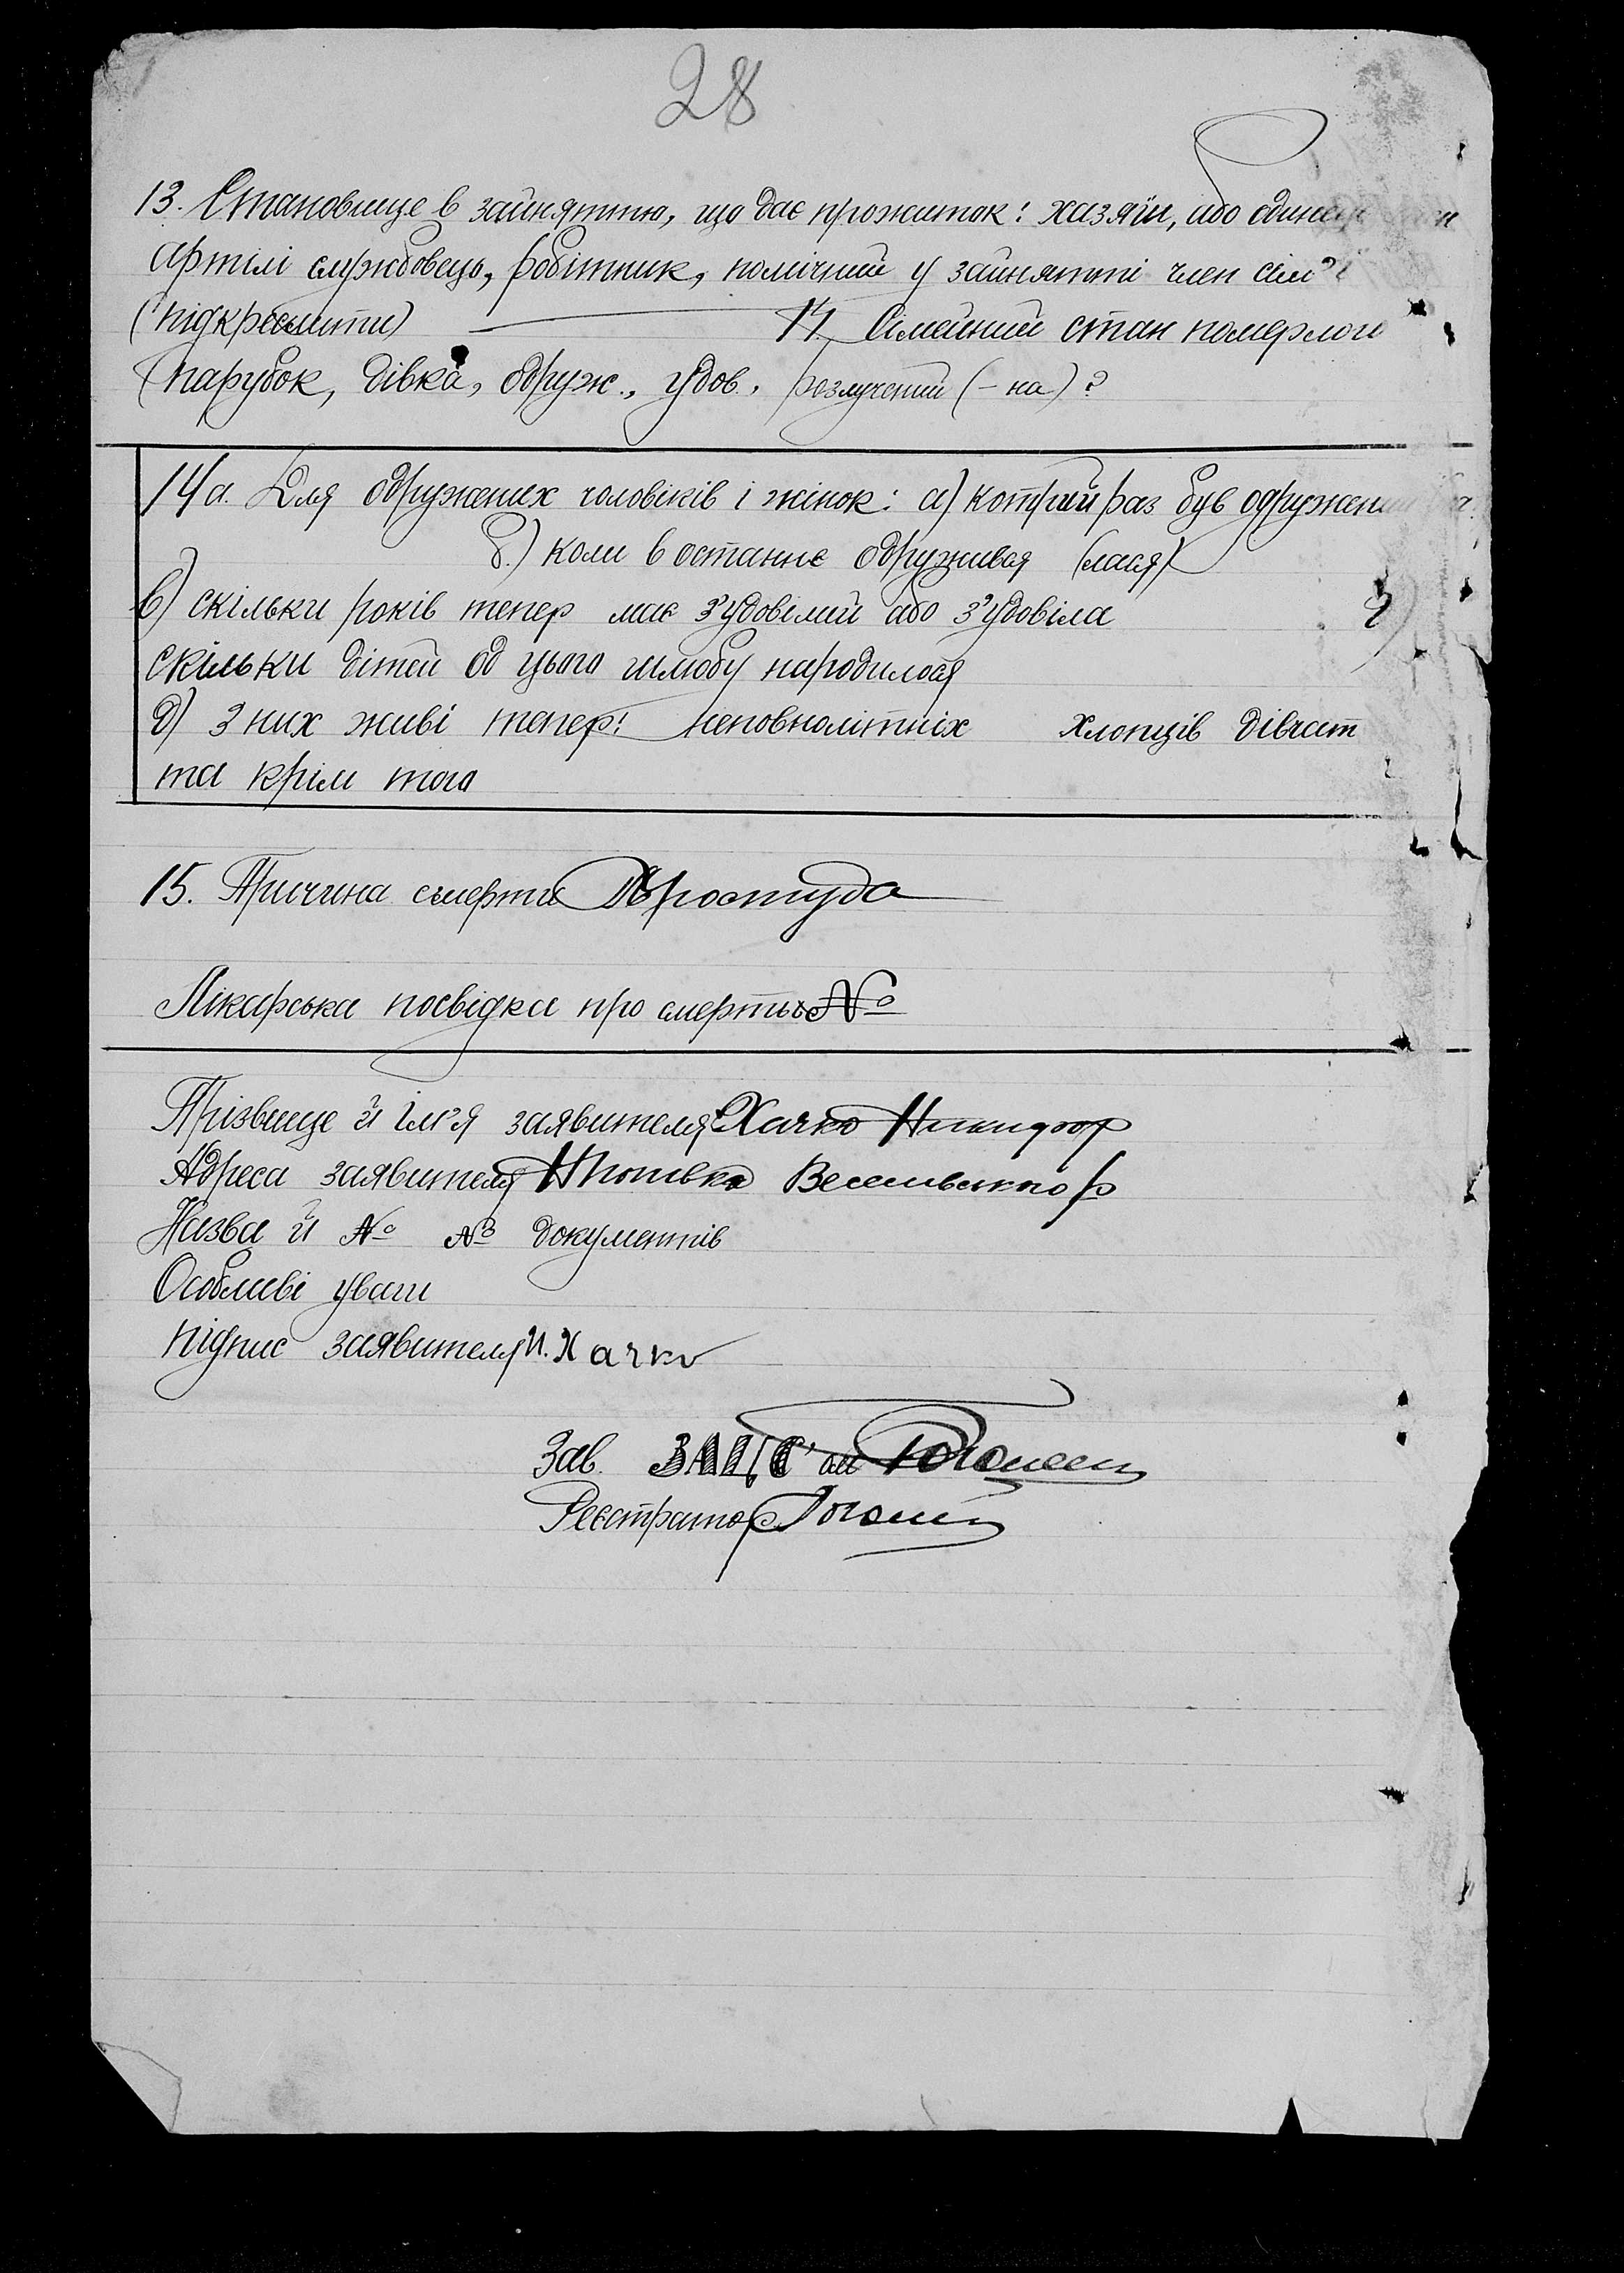 28
13. Становище в зайняттю, що дає прожиток: хазяїн, або один
артілі службовець, робітник, помічний у зайнятті член сім'ї
(підкреслити) 14. Сімейний стан померлого
(парубок, дівка, одруж., удов., розлучений (-на)?
14а. Для одружених чоловіків і жінок: а) котрий раз був одружений
б.) коли в останнє одружився (лася)
в) скільки років тепер має з'удовілий або з'удовіла г)
скільки дітей од цього шлюбу народилося
д) з них живі тепер: неповнолітніх хлопців дівчат
та крім того
15. Причина смерти Простуда
Лікарська посвідка про смерть №
Прізвище й ім'я заявителя Хачко Никифор
Адреса заявителя Веселівського р
Назва й № № документів
Особливі уваги
підпис заявителя Н. Хачко
Зав. ЗАЦС'ом
Реєстратор